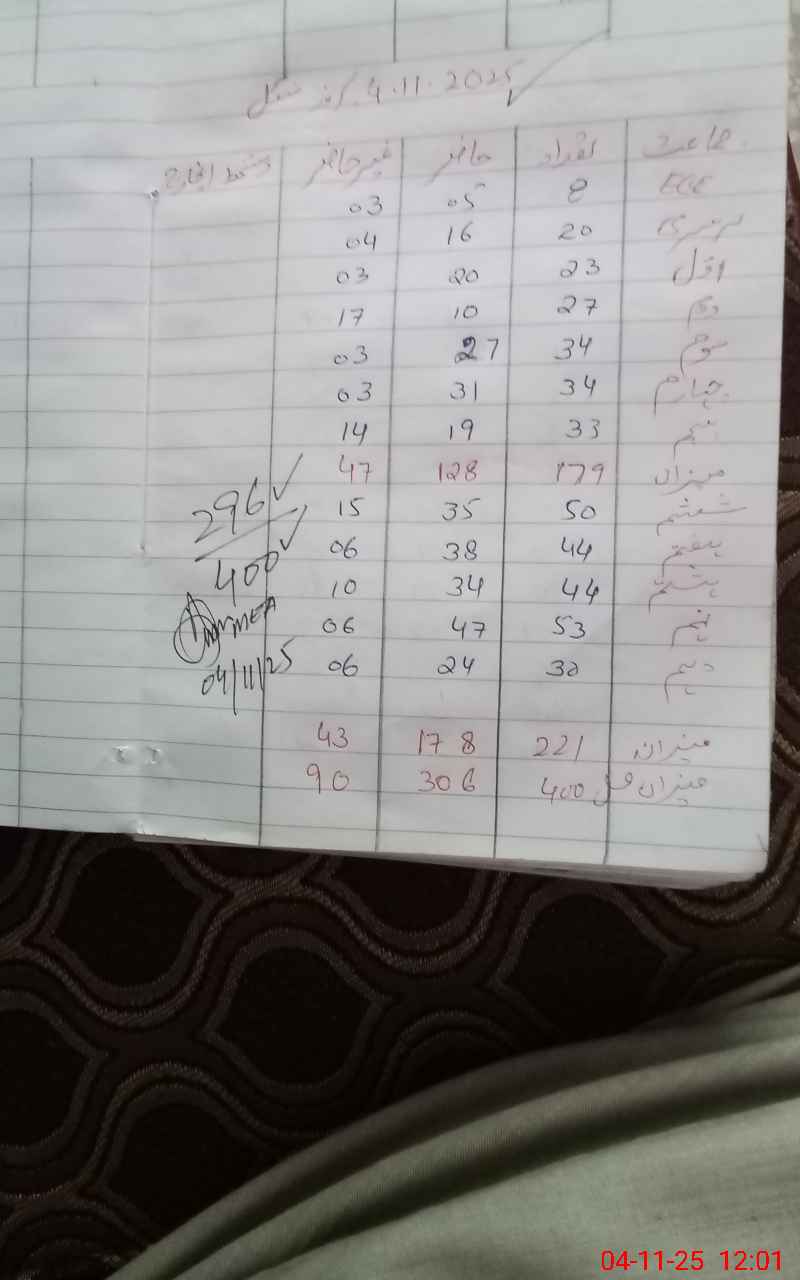 4.11.2025 بروز منگل
جماعت تعداد حاضر غیر حاضر دستخط انچارج
ECE 8 05 03
نرسری 20 16 04
اول 23 20 03
دوم 27 10 17
سوم 34 27 03
چہارم 34 31 03
پنجم 33 19 14
میزان 179 128 47
ششم 50 35 15
ہفتم 44 38 06
ہشتم 44 34 10
نہم 53 47 06
دہم 30 24 06
میزان 221 178 43
میزان کل 400 306 90
296
400
MEA
04/11/25
04-11-25 12:01